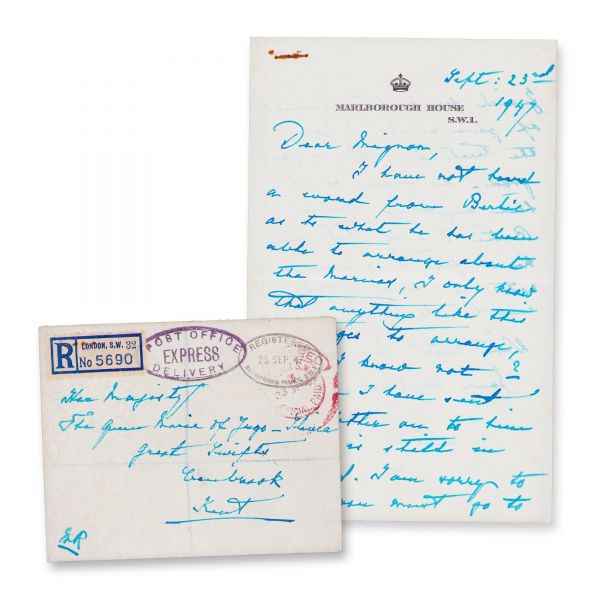 Sept: 23rd
1947
MARLBOROUGH HOUSE
S.W.1.
Dear Mignon,
I have not had
a word from Bertie
as to what he has been
able to arrange about
the Marriage, I only know
that anything like this
to arrange,
I know not ?
I have sent
letter on to him
is still in
I am sorry to
you must go to
R
LONDON, S.W. 32
No 5690
POST OFFICE
EXPRESS
DELIVERY
REGISTERED
23 SEP
OFFICIAL PAID
Her Majesty
The Queen Marie of Jugo-Slavia
Great Swifts
Cranbrook
Kent